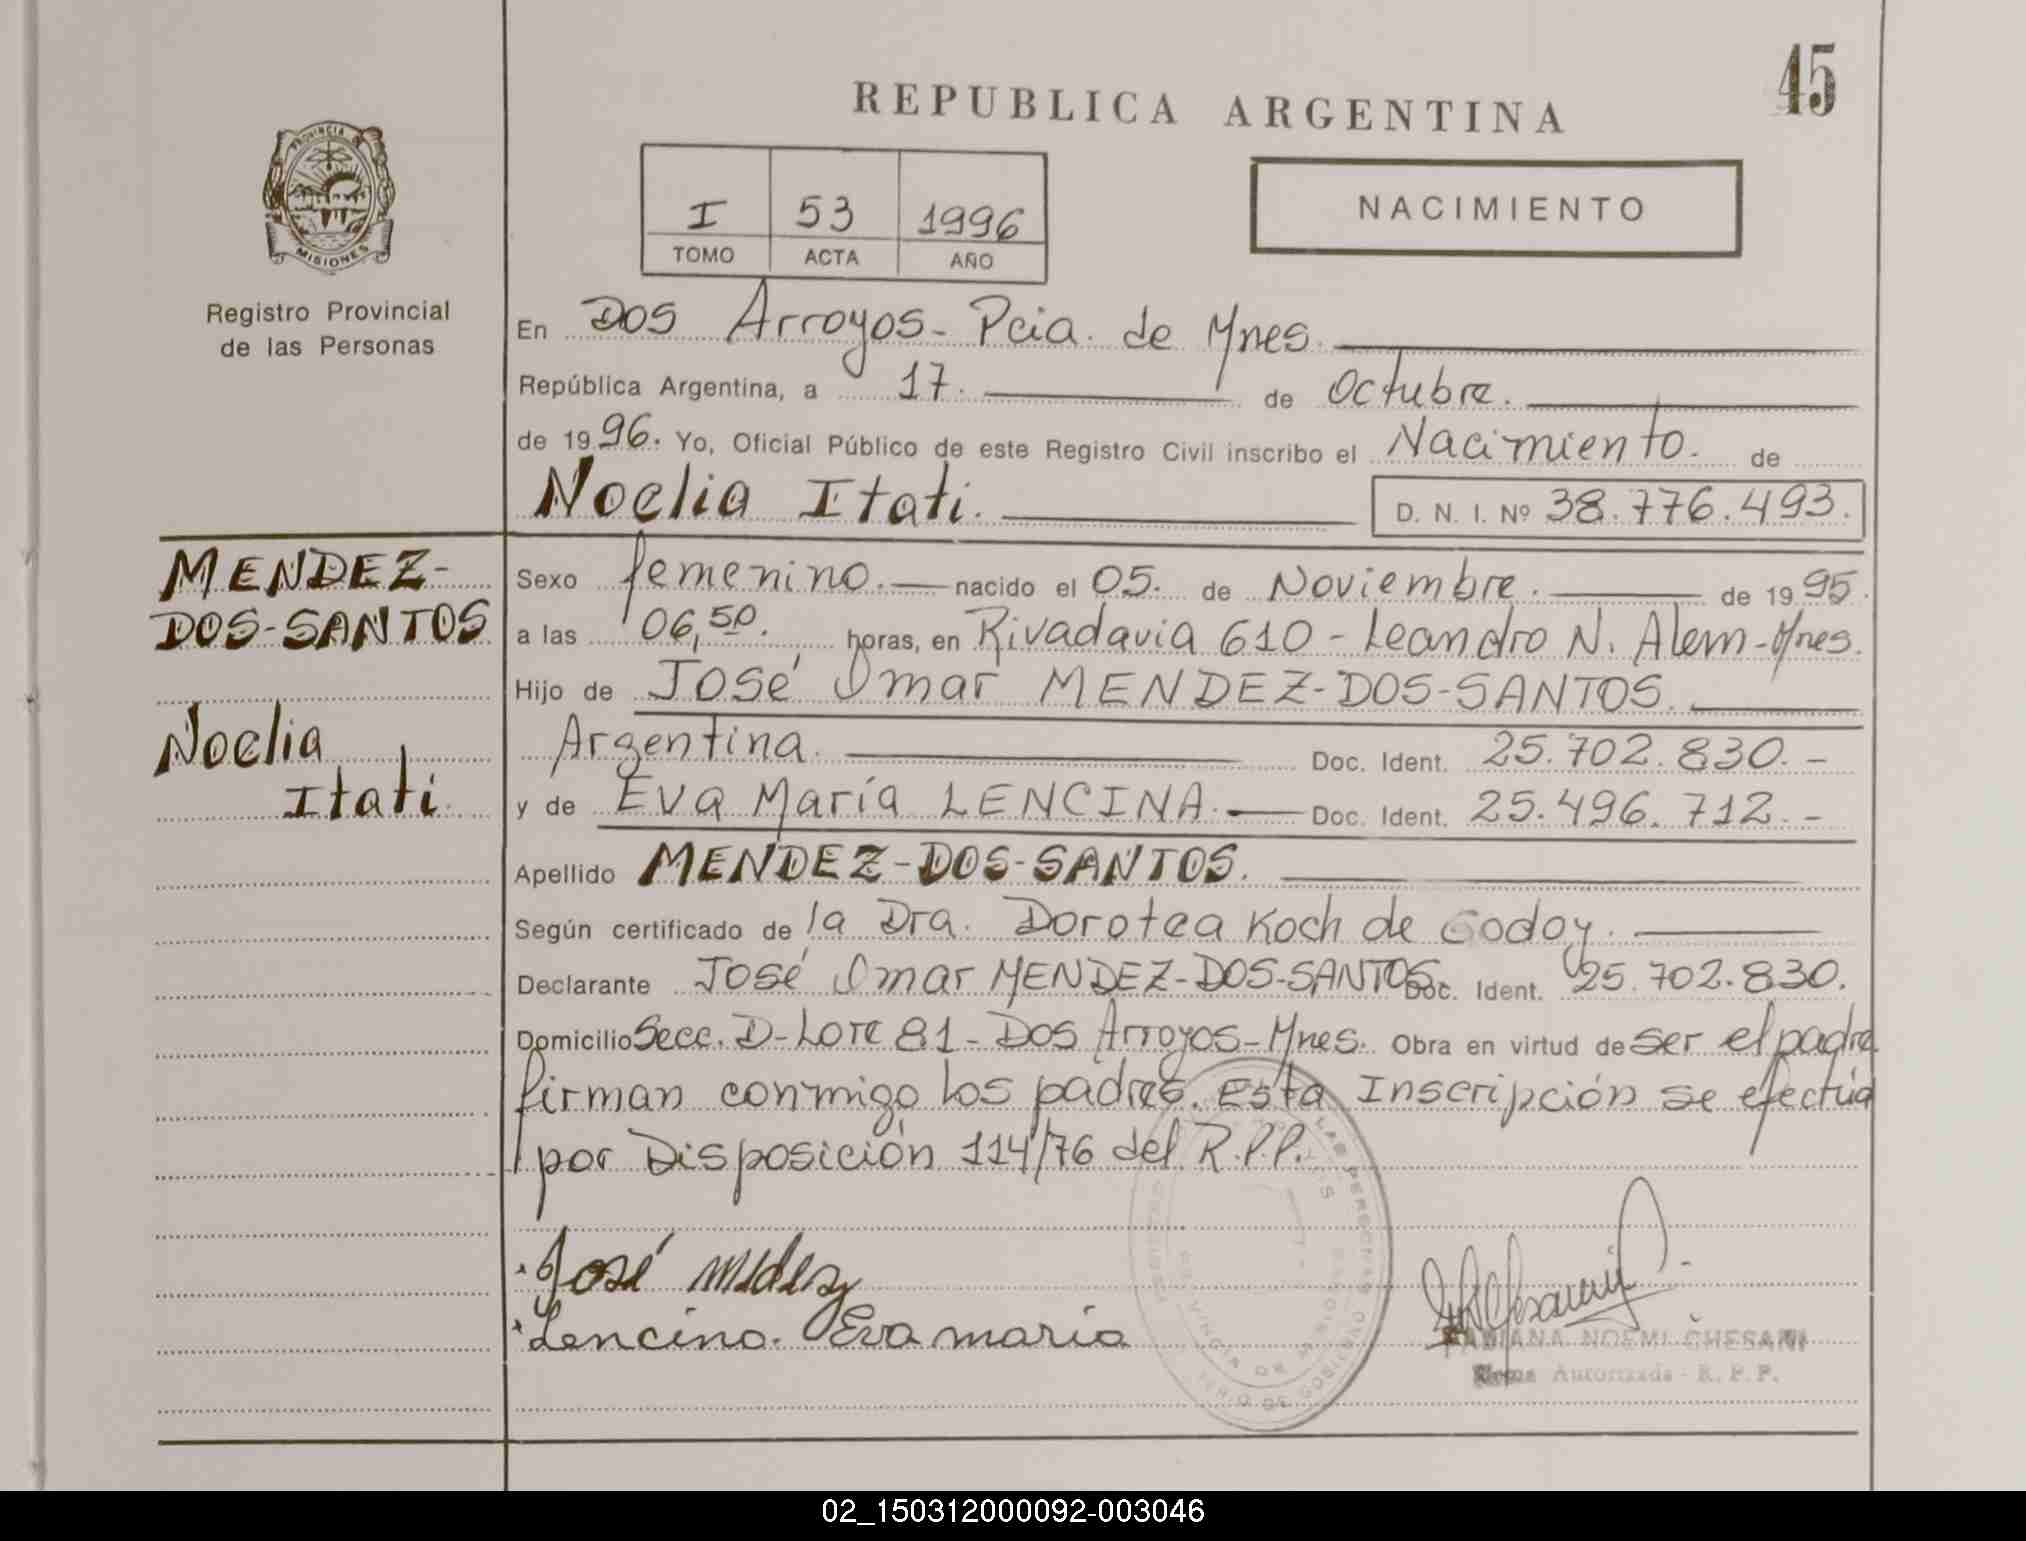 45
REPUBLICA ARGENTINA
PROVINCIA DE
MISIONES
Registro Provincial
de las Personas
I 53 1996
TOMO ACTA AÑO
NACIMIENTO
En Dos Arroyos- Pcia. de Mnes.
República Argentina, a 17. de Octubre.
de 1996. Yo, Oficial Público de este Registro Civil inscribo el Nacimiento. de
Noelia Itati. D. N. I. Nº 38.776.493.
MENDEZ-
DOS-SANTOS
Noelia
Itati.
Sexo femenino. nacido el 05. de Noviembre. de 1995.
a las 06,50. horas, en Rivadavia 610 - Leandro N. Alem-Mnes.
Hijo de José Omar MENDEZ-DOS-SANTOS.
Argentina. Doc. Ident. 25.702.830.-
y de Eva María LENCINA. Doc. Ident. 25.496.712.-
Apellido MENDEZ-DOS-SANTOS.
Según certificado de la Dra. Dorotea Koch de Godoy.
Declarante José Omar MENDEZ-DOS-SANTOS. Doc. Ident. 25.702.830.
Domicilio Secc. D-Lote 81- Dos Arroyos-Mnes. Obra en virtud de ser el padre
firman conmigo los padres. Esta Inscripción se efectúa
por Disposición 114/76 del R.P.P.
José
Lencina. Eva maria
FABIANA NOEMI CHESANI
Firma Autorizada - R. P. P.
02_150312000092-003046